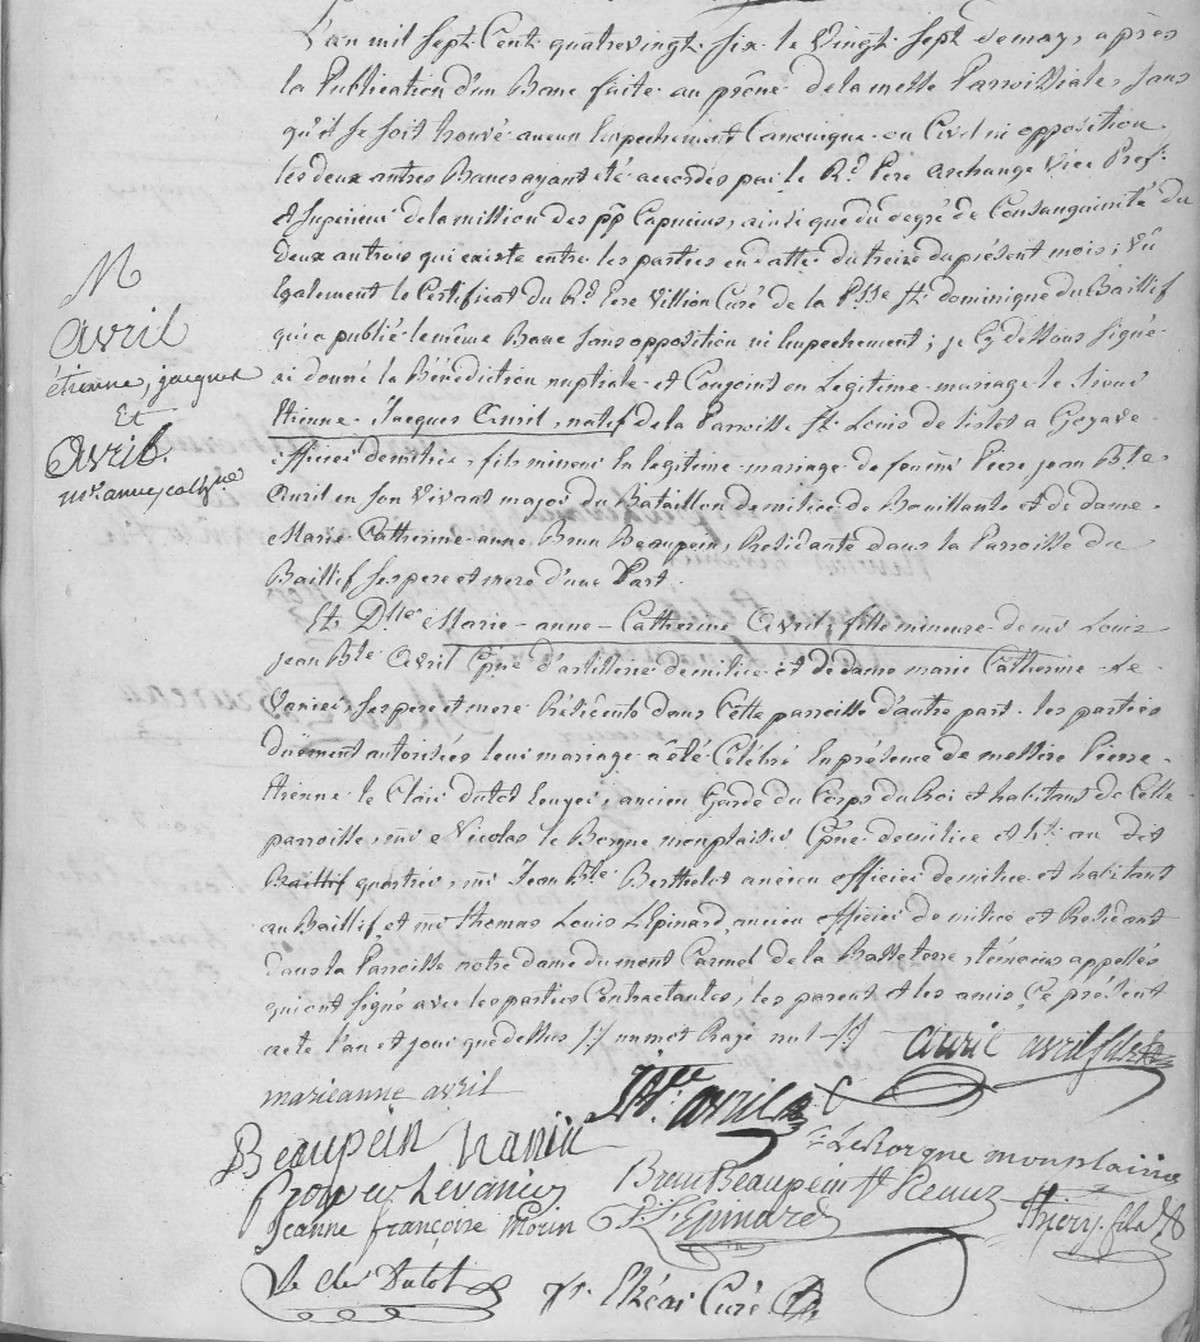 L'an mil Sept Cent quatrevingt six le Vingt Sept de may, après
la Publication d'un Banc faite au prône de la messe Parroissiale, sans
qu'il se soit trouvé aucun Empechement Canonique ou Civil ni opposition
les deux autres Bancs ayant été accordés par le Rd. Pere Archange Vice Pref.
et Superieur de la mission des pp Capucins, ainsi que du degré de Consanguinité du
deux au trois qui existe entre les parties en datte du treize du présent mois; Vû
Egalement le Certificat du Rd. Pere Villion Curé de la Psse St. dominique du Baillif
qui a publié le même Banc sans opposition ni Empechement; je Cy dessous signé
ai donné la Bénédiction nuptiale et Conjoint en Legitime mariage le Sieur
Etienne Jacques Avril, natif de la Parroisse St. Louis de l'islet a Goyave
officier de milice, fils mineur En legitime mariage de feu mr Pierre jean Bte
Avril en son Vivant major du Bataillon de milice de Bouillante et de dame
Marie Catherine anne Brun Beaupein, Residante dans la Parroisse du
Baillif ses pere et mere d'une Part.
Et Dlle Marie-anne-Catherine Avril, fille mineure de mr Louis
jean Bte Avril Cpne d'artillerie de milice et de dame marie Catherine Le
Vanier, ses pere et mere Résidents dans Cette parroisse d'autre part. les parties
duëment autorisées leur mariage a été Célébré En présence de messire Pierre
Etienne le Clair dutot, ancien Garde du Corps du Roi et habitant de Cette
parroisse, mr Nicolas le Borgne monplaisir Cpne de milice et ht. au dit
Baillif quartier, mr Jean Bte Berthelot ancien officier de milice et habitant
au Baillif et mr thomas Louis L'Epinard, ancien officier de milice et Residant
dans la Parroisse notre dame du mont Carmel de la Basseterre, témoins appellés
qui ont signé avec les parties Contractantes, les parent et les amis Ce présent
acte l'an et jour que dessus /:/ un mot Rayé nul /:/
M
Avril
étienne, jacques
Et
Avril
mie anne, cathne
avril avril fils
marieanne avril
JBte: avril
Beaupein
Le Borgne monplaisir
Levanier
Brun Beaupein
Jeanne françoise Morin
L'Epinard
Thiery fils
Le Cler Dutot
Curé